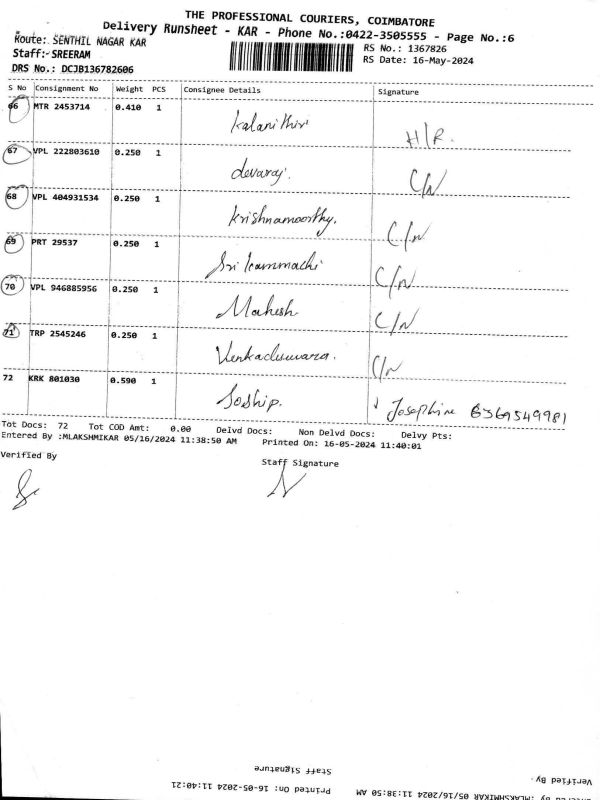 THE PROFESSIONAL COURIERS, COIMBATORE
Delivery Runsheet - KAR - Phone No.:0422-3505555 - Page No.:6
Route: SENTHIL NAGAR KAR
RS No.: 1367826
Staff:-SREERAM
RS Date: 16-May-2024
DRS No.: DCJB136782606
S No Consignment No Weight PCS Consignee Details Signature
66 MTR 2453714 0.410 1 kalanithir H/R.
67 VPL 222803610 0.250 1 devaraj. C/N
68 VPL 404931534 0.250 1 krishnamoorthy. C/N
69 PRT 29537 0.250 1 Sri kammachi C/N
70 VPL 946885956 0.250 1 Mahesh C/N
71 TRP 2545246 0.250 1 Venkadeswara. C/N
72 KRK 801030 0.590 1 Soship. Josephine 6369549981
Tot Docs: 72 Tot COD Amt: 0.00 Delvd Docs: Non Delvd Docs: Delvy Pts:
Entered By :MLAKSHMIKAR 05/16/2024 11:38:50 AM Printed On: 16-05-2024 11:40:01
Verified By Staff Signature
Staff Signature Verified By
Printed On: 16-05-2024 11:40:21 By :MLAKSHMIKAR 05/16/2024 11:38:50 AM